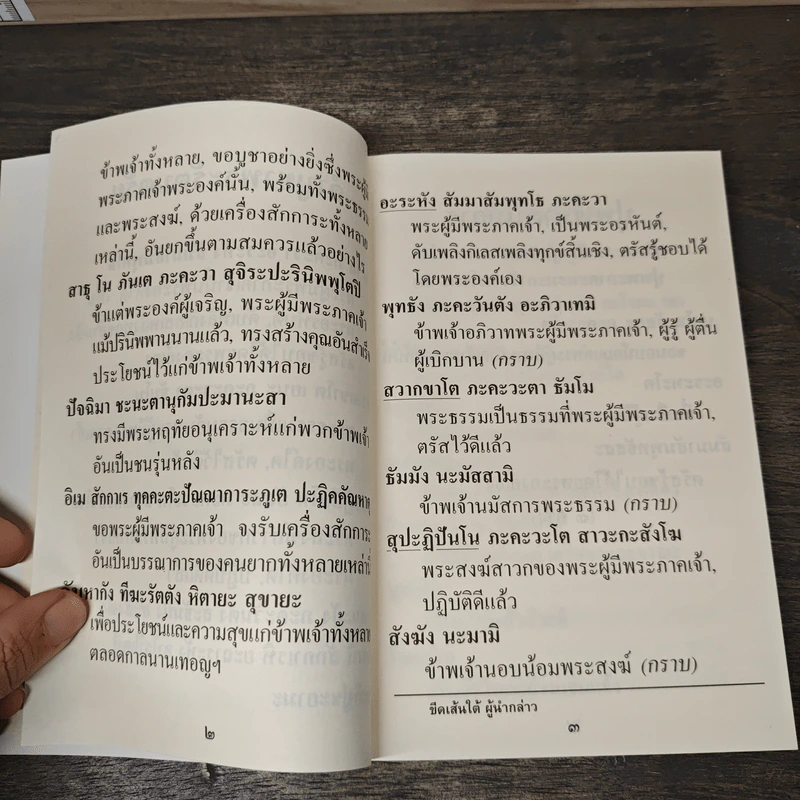 ข้าพเจ้าทั้งหลาย, ขอบูชาอย่างยิ่งซึ่งพระผู้มี
พระภาคเจ้าพระองค์นั้น, พร้อมทั้งพระธรรม
และพระสงฆ์, ด้วยเครื่องสักการะทั้งหลาย
เหล่านี้, อันยกขึ้นตามสมควรแล้วอย่างไร
สาธุ โน ภันเต ภะคะวา สุจิระปะรินิพพุโตปิ
ข้าแต่พระองค์ผู้เจริญ, พระผู้มีพระภาคเจ้า
แม้ปรินิพพานนานแล้ว, ทรงสร้างคุณอันสำเร็จ
ประโยชน์ไว้แก่ข้าพเจ้าทั้งหลาย
ปัจฉิมา ชะนะตานุกัมปะมานะสา
ทรงมีพระหฤทัยอนุเคราะห์แก่พวกข้าพเจ้า
อันเป็นชนรุ่นหลัง
อิเม สักกาเร ทุคคะตะปัณณาการะภูเต ปะฏิคคัณหาตุ
ขอพระผู้มีพระภาคเจ้า จงรับเครื่องสักการะ
อันเป็นบรรณาการของคนยากทั้งหลายเหล่านี้
ทีฆะรัตตัง หิตายะ สุขายะ
เพื่อประโยชน์และความสุขแก่ข้าพเจ้าทั้งหลาย
ตลอดกาลนานเทอญฯ
๒
อะระหัง สัมมาสัมพุทโธ ภะคะวา
พระผู้มีพระภาคเจ้า, เป็นพระอรหันต์,
ดับเพลิงกิเลสเพลิงทุกข์สิ้นเชิง, ตรัสรู้ชอบได้
โดยพระองค์เอง
พุทธัง ภะคะวันตัง อะภิวาเทมิ
ข้าพเจ้าอภิวาทพระผู้มีพระภาคเจ้า, ผู้รู้ ผู้ตื่น
ผู้เบิกบาน (กราบ)
สวากขาโต ภะคะวะตา ธัมโม
พระธรรมเป็นธรรมที่พระผู้มีพระภาคเจ้า,
ตรัสไว้ดีแล้ว
ธัมมัง นะมัสสามิ
ข้าพเจ้านมัสการพระธรรม (กราบ)
สุปะฏิปันโน ภะคะวะโต สาวะกะสังโฆ
พระสงฆ์สาวกของพระผู้มีพระภาคเจ้า,
ปฏิบัติดีแล้ว
สังฆัง นะมามิ
ข้าพเจ้านอบน้อมพระสงฆ์ (กราบ)
ขีดเส้นใต้ ผู้นำกล่าว
๓